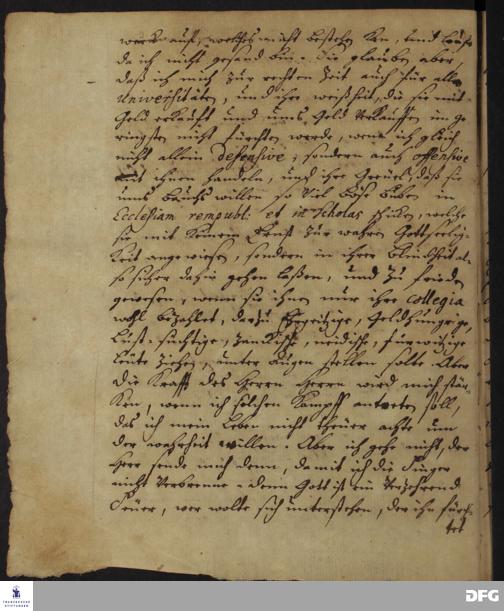 werck auff, welches nicht bestehen kan, und
da ich nicht gesand bin. Sie glauben aber,
daß ich mich zur rechten Zeit auch für allen
Universitäten, und ihre weißheit, die sie mit
Geld erkaufft und umb Geld verkauffen im ge
ringsten nicht fürchten werde, wenn ich gleich
nicht allein defensive, sondern auch offensive
mit ihnen handele, und ihre Greuel, daß sie
umb bauchs willen so viel böse buben in
Ecclesiam rempubl: et in Scholas schicken, welche
sie mit keinem Ernst zur wahren Gottseelig-
keit angewiesen, sondern in ihrer blindheit al-
so sicher dahin gehen laßen, und zu frieden
gewesen, wenn sie ihnen nur ihre Collegia
wohl bezahlet, darzu Ehrgeitzige, Geldhungerige,
Lust-süchtige, zänckische, neidische, fürwitzige
Leute ziehen, unter augen stellen solte. Aber
die Krafft des Herrn Herrn wird mich stär-
ken, wenn ich solchen Kampff antreten soll,
das ich mein Leben nicht theuer achte um
der wahrheit willen. Aber ich gehe nicht, der
Herr sende mich denn, damit ich die Finger
nicht verbrenne. denn Gott ist ein verzehrend
Feuer, wer wolte sich unterstehen, der ihn fürch-
tet
FRANCKESCHE
STIFTUNGEN
DFG